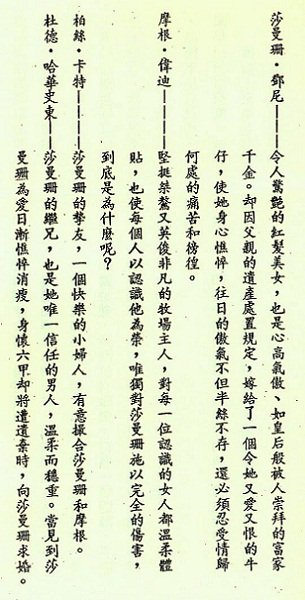 莎曼珊·鄧尼————令人驚艷的紅髮美女，也是心高氣傲、如皇后般被人崇拜的富家
千金。却因父親的遺產處置規定，嫁給了一個令她又愛又恨的牛
仔，使她身心憔悴，往日的傲氣不但半絲不存，還必須忍受情歸
何處的痛苦和徬徨。
摩根·偉迪————堅挺桀驁又英俊非凡的牧場主人，對每一位認識的女人都溫柔體
貼，也使每個人以認識他為榮，唯獨對莎曼珊施以完全的傷害，
到底是為什麼呢？
柏絲·卡特————莎曼珊的摯友，一個快樂的小婦人，有意撮合莎曼珊和摩根。
杜德·哈華史東——莎曼珊的繼兄，也是她唯一信任的男人，溫柔而穩重。當見到莎
曼珊為愛日漸憔悴消瘦，身懷六甲却將遭遺棄時，向莎曼珊求婚。